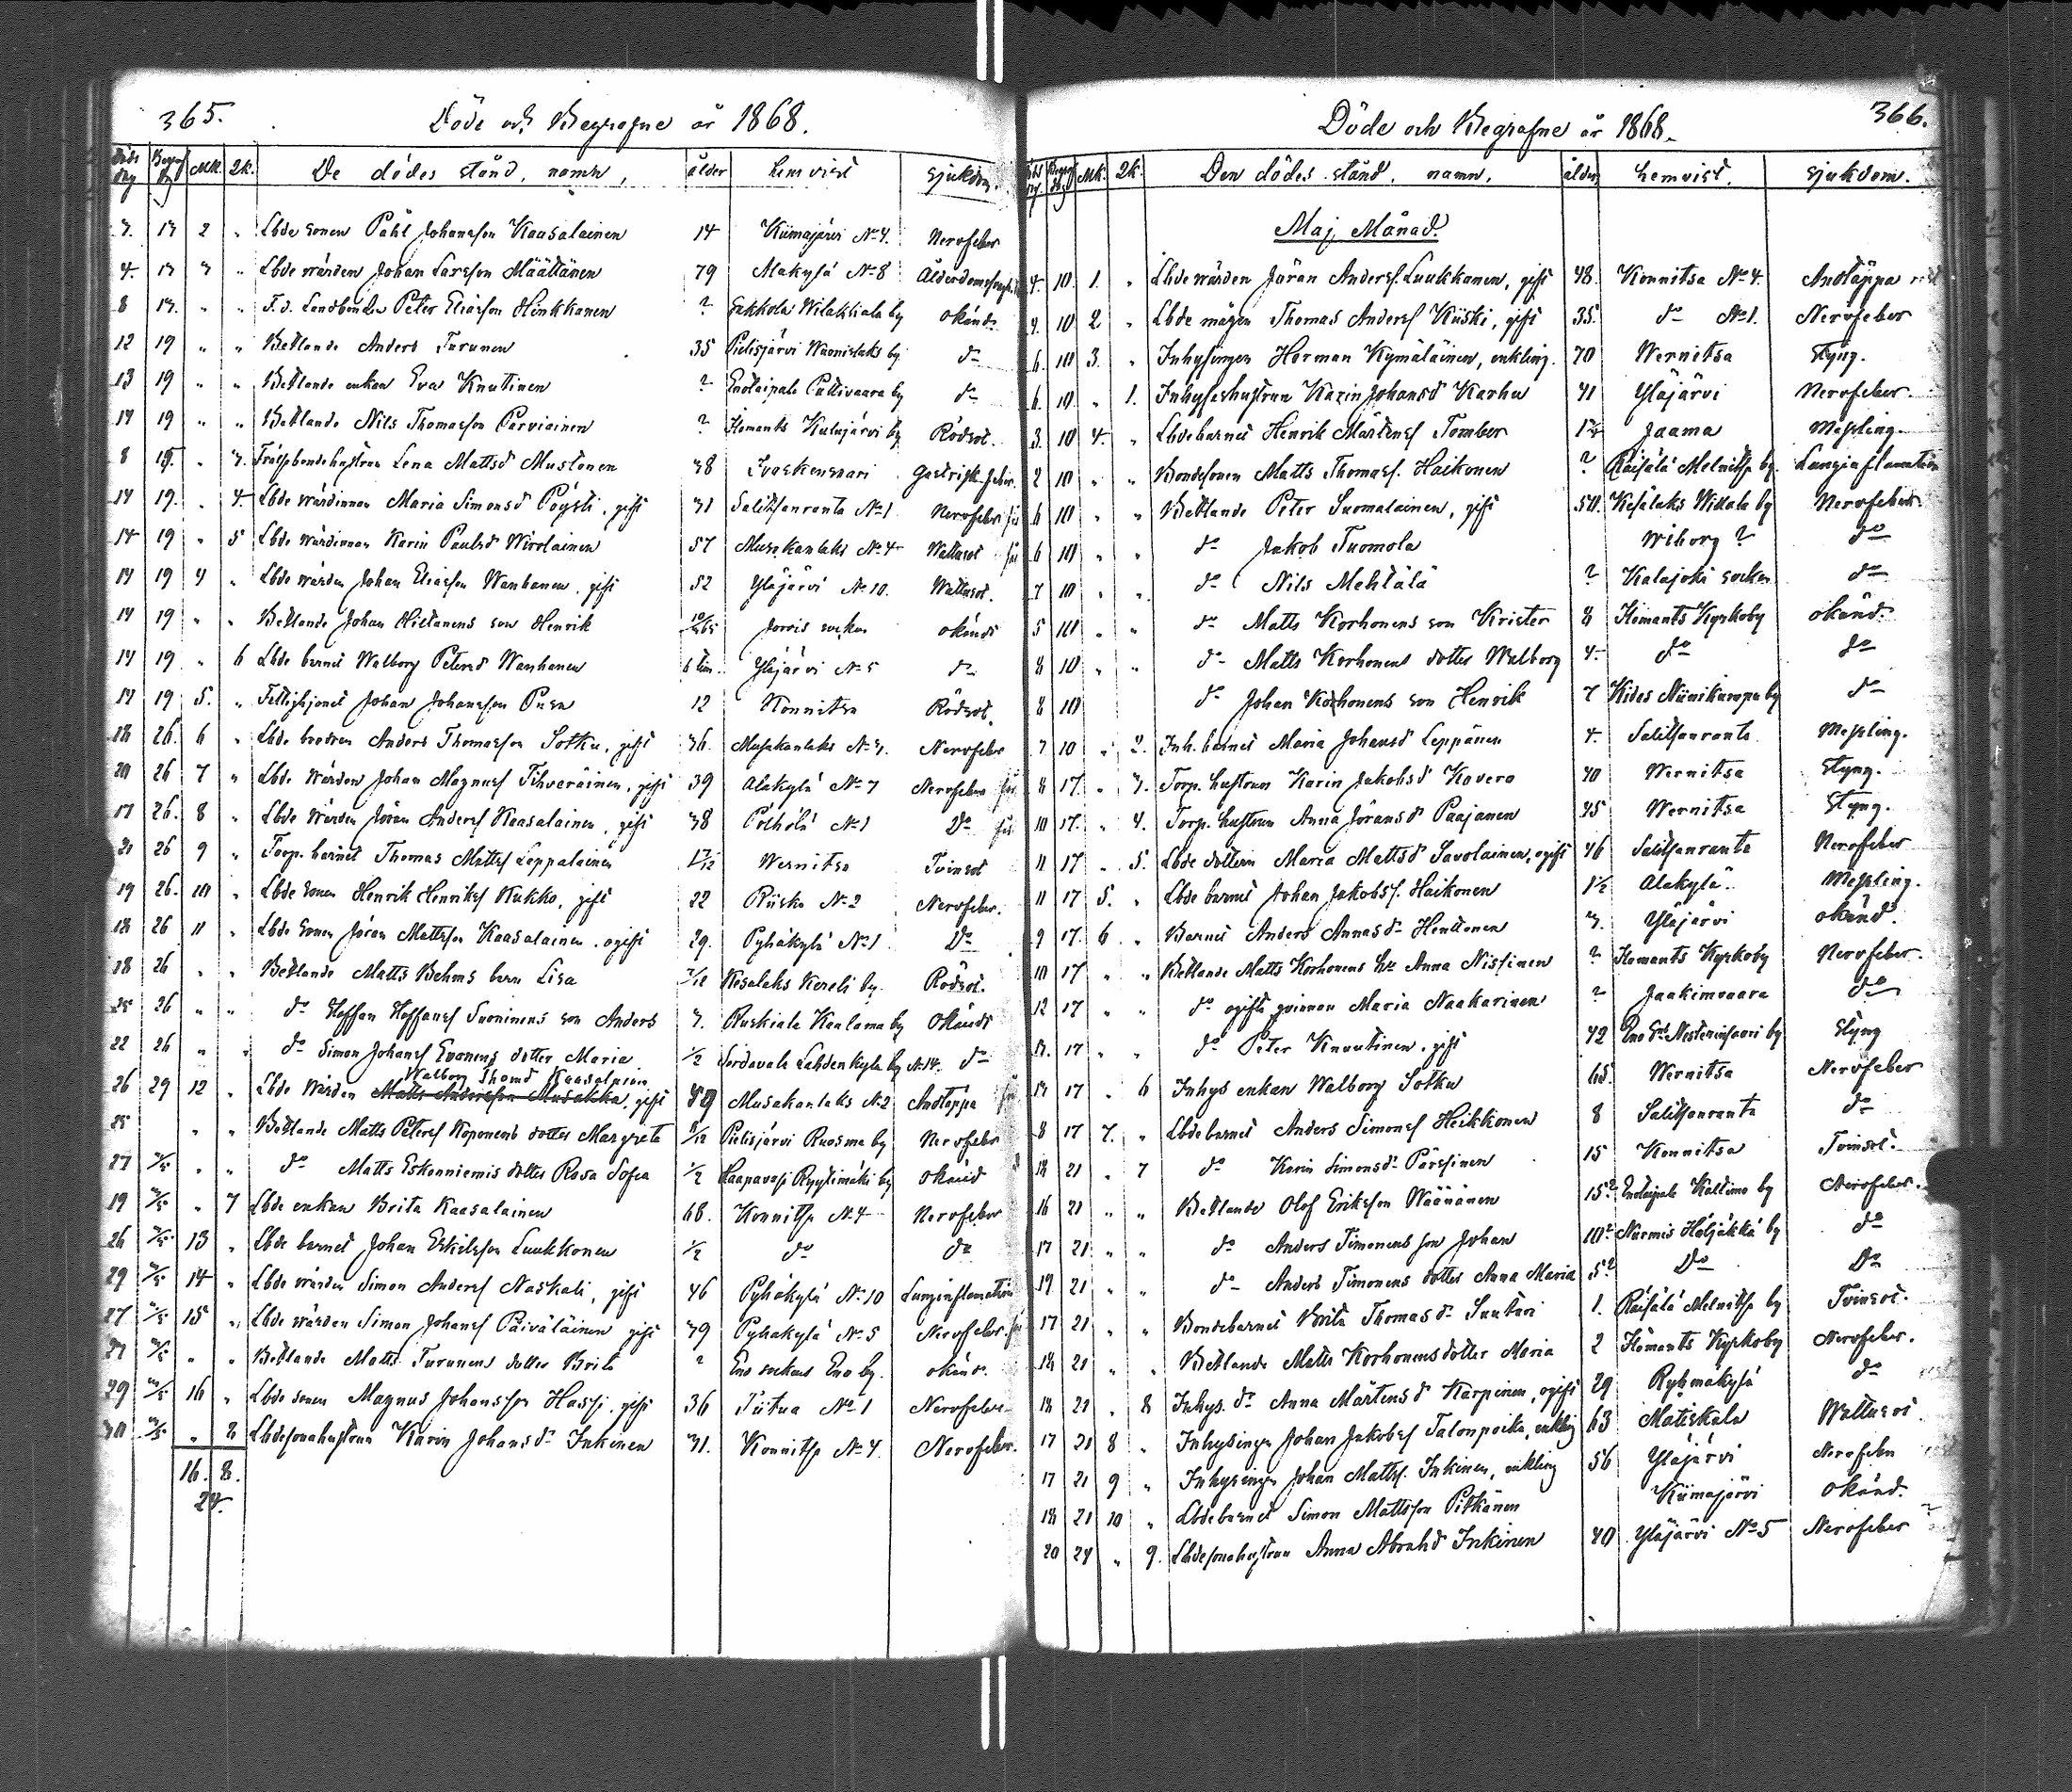 365.
Döde och Begrafne år 1868.
Döds dag Begrafn dag Mk. Qk. De dödes stånd, namn, ålder hemvist sjukdom.
3. 13 2 " Lbde sonen Påhl Johansson Kaasalainen 14 Kiimajärvi No 4. Nervfeber
4. 13 3 " Lbde värden Johan Larsson Määttänen 79 Alakylä No 8 Ålderdomssvaghet
8 13. " " F.d. Landbonden Peter Eliasson Hinkkanen ? Jakkola Wilakkala by okänd
12 19 " " Betlande Anders Turunen 35 Pielisjärvi Waonislaks by do
13 19 " " Betlande enkan Eva Knutinen ? Enotaipale Pattivaara by do
14 19 " " Betlande Nils Thomasson Parviainen ? Ilomants Kulujärvi by Rödsot.
8 19. " 3. Frälsebondehustrun Lena Mattsd Mustonen 38 Ivaskensaari Gastrisk feber.
14 19. " 4. Lbde wärdinnan Maria Simonsd Pöysti, gift 31 Salitsanranta No 1 Nervfeber
14 19 " 5 Lbde wärdinnan Karin Paulsd Wirolainen 57 Musakanlaks No 4 Wattusot
14 19 4 " Lbde wärden Johan Eliasson Wanhanen, gift 52 Yläjärvi No 10. Wattusot.
14 19 " " Betlande Johan Hietanens son Henrik Jorois socken okänd
14 19 " 6 Lbde barnet Walborg Petersd Wanhanen 6 tim. Yläjärvi No 5 do
14 19 5. " Fattighjonet Johan Johansson Pusa 12 Konnitsa Rödsot.
18 26. 6 " Lbde brodren Anders Thomasson Sotku, gift 36. Musakanlaks No 3. Nervfeber
20 26 7 " Lbde Wärden Johan Magnuss Tihveräinen, gift 39 Alakylä No 7 Nervfeber
17 26. 8 " Lbde Wärden Jöran Anderss Kaasalainen, gift 38 Potholä No 1 Do
21 26 9 " Torp. barnet Thomas Mattss Leppalainen 1 7/12 Wernitsa Tvinsot
19 26. 10 " Lbde sonen Henrik Henrikss Kukko, gift 22 Riiska No 2 Nervfeber.
18 26 11 " Lbde Sonen Jöran Mattsson Kaasalainen, ogift 29. Pyhäkylä No 1 Do
18 26 " " Betlande Matts Behms barn Lisa 7/12 Kesalaks Kereli by. Rödsot.
25 26 " " do Staffan Staffanss Suominens son Anders 3. Ruskiala Kaalama by Okänd
22 26 " " do Simon Johanss Evonens dotter Maria 1/2 Sordavala Lahdenkylä by No 14. do
Walborg Thomd Kaasalainen
26 29 12 " Lbde Wärden Matts Andersson Musakka, gift 49 Musakanlaks No 2 Andtäppa
25 " " Betlande Matts Peterss Koponens dotter Margreta 8/12 Pielisjärvi Ruosma by Nervfeber
27 3/5 " " do Matts Eskonniemis dotter Rosa Sofia 1/2 Haapavesi Ryytimäki by okänd
19 3/5 " 7 Lbde enkan Brita Kaasalainen 68. Konnitsa No 4 Nervfeber
26 3/5 13 " Lbde barnet Johan Eskilsson Luukkonen 1/2 do do
29 3/5 14 " Lbde wärden Simon Anderss Naskali, gift 46 Pyhäkylä No 10 Lunginflamation
27 3/5 15 " Lbde wärden Simon Johanss Päiväläinen gift 39 Pyhäkylä No 5 Nervfeber.
27 3/5 " " Betlande Matts Turunens dotter Brita ? Eno sockens Eno by. okänd.
29 3/5 16 " Lbde sonen Magnus Johansson Hassi, gift 36 Tiitua No 1 Nervfeber
30 3/5 " 8 Lbdesonahustrun Karin Johansdr Inkinen 31. Konnitsa No 4 Nervfeber.
16. 8.
24.
366.
Döde och Begrafne år 1868.
Döds dag Begr. dag Mk. Qk. Den dödes stånd, namn, ålder hemvist. sjukdom.
Maj Månad.
4. 10. 1. " Lbde wärden Jöran Anderss. Luukkanen, gift 48. Konnitsa No 4. Andtäppa
4. 10 2 " Lbde mågen Thomas Anderss Kiiski, gift 35. do No 1. Nervfeber
6. 10 3. " Inhysingen Herman Kymäläinen, enkling. 70 Wernitsa Styng.
6. 10. " 1. Inhyseshustrun Karin Johansd Karhu 41 Yläjärvi Nervfeber.
3. 10 4. " Lbdebarnet Henrik Mårtenss Tomber Jaama Messling
2 10 " " Bondesonen Matts Thomass. Haikonen ? Räisälä Melnitsa by. Lunginflamation
6 10 " " Betlande Peter Suomalainen, gift 50. Kesälaks Willala by Nervfeber
6 10 " " do Jakob Tuomola Wiborg ? do
7 10 " " do Nils Mehtälä ? Kalajoki socken do
5 10 " " do Matts Korhonens son Krister 8 Ilomants Kyrkoby okänd.
8 10 " " do Matts Korhonens dotter Walborg 4. do do
8 10 do Johan Korhonens son Henrik 7 Kides Niinikumpu by do
7 10 " 2. Inh. barnet Maria Johansd Leppänen 4. Salitsanranta Messling.
8 17. " 3. Torp. hustrun Karin Jakobsd Kavera 40 Wernitsa Styng.
10 17. " 4. Torp. hustrun Anna Göransd Paajanen 45 Wernitsa Styng.
11 17 " 5. Lbde dottren Maria Mattsd Savolainen, ogift 46 Salitsanranta Nervfeber
11 17 5. " Lbde barnet Johan Jakobss. Haikonen 1 1/2 Alakylä. Messling.
9 17. 6 " Barnet Anders Annas dr Henttonen 3. Yläjärvi okänd.
10 17 " " Betlande Matts Korhonens hu Anna Nissinen ? Ilomants Kyrkoby Nervfeber.
12 17 " " do ogifta qvinnan Maria Naakarinen ? Jaakimvaara do
13. 17 " " do Peter Knuutinen, gift 42 Eno Nesterinsaari by Styng
14 17 " 6 Inhys enkan Walborg Sotku 65. Wernitsa Nervfeber
8 17 7. " Lbdebarnet Anders Simonss Heikkonen 8 Salitsanranta do
18 21 " 7 do Karin Simonsdr Pärssinen 15 Konnitsa Tvinsot.
16 21 " " Betlande Olof Eriksson Wäänänen 15? Enotaipale Kaltimo by Nervfeber.
17 21 " " do Anders Timonens son Johan 10? Nurmis Höljäkkä by do
19 21 " " do Anders Timonens dotter Anna Maria 5? Do Do
17 21 " " Bondebarnet Brita Thomasdr Suutari 1. Räisälä Melnitsa by Tvinsot.
18 21 " " Betlande Matts Korhonens dotter Maria 2 Ilomants Kyrkoby Nervfeber.
18 21 " 8 Inhys. dr Anna Mårtensd Karpinen, ogift 29 Ryhmäkylä do
17 21 8 " Inhysinge Johan Jakobss Talonpoika, enkling 63 Matiskala Wattusot
17 21 9 " Inhysinge Johan Mattss. Inkinen, enkling 56 Yläjärvi Nervfeber
18 21 10 " Lbdebarnet Simon Mattsson Pitkänen Kiimajärvi Okänd.
20 24 " 9. Lbdesonahustrun Anna Abrahd Inkinen 40 Yläjärvi No 5 Nervfeber